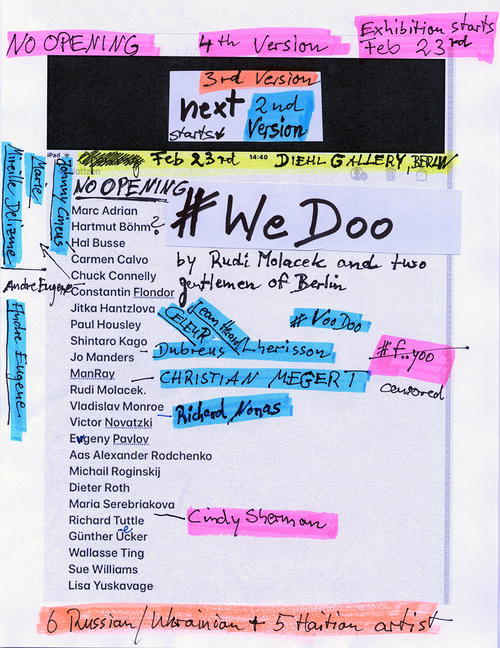 NO OPENING
4th Version
Exhibition starts
Feb 23rd
3rd Version
next 2nd
starts Version
iPad
14:40
Feb 23rd DIEHL GALLERY, BERLIN
NO OPENING
# We Doo
by Rudi Molacek and two
gentlemen of Berlin
Marc Adrian
Hartmut Böhm ?
Hal Busse
Carmen Calvo
Chuck Connelly
Constantin Flondor
Jitka Hantzlova
Paul Housley
Shintaro Kago
Jo Manders
ManRay
Rudi Molacek.
Vladislav Monroe
Victor Novatzki
Evgeny Pavlov
Aas Alexander Rodchenko
Michail Roginskij
Dieter Roth
Maria Serebriakova
Richard Tuttle
Günther Ücker
e
Wallasse Ting
Sue Williams
Lisa Yuskavage
Mireille Delizme
Marie
Johnny Cineus
Andre Eugene
Andre Eugene
CELEUR
Jean Herard
# VooDoo
Dubreus Lherisson
CHRISTIAN MEGERT
Richard Nonas
Cindy Sherman
# f..yoo
censored
6 Russian/Ukrainian + 5 Haitian artist